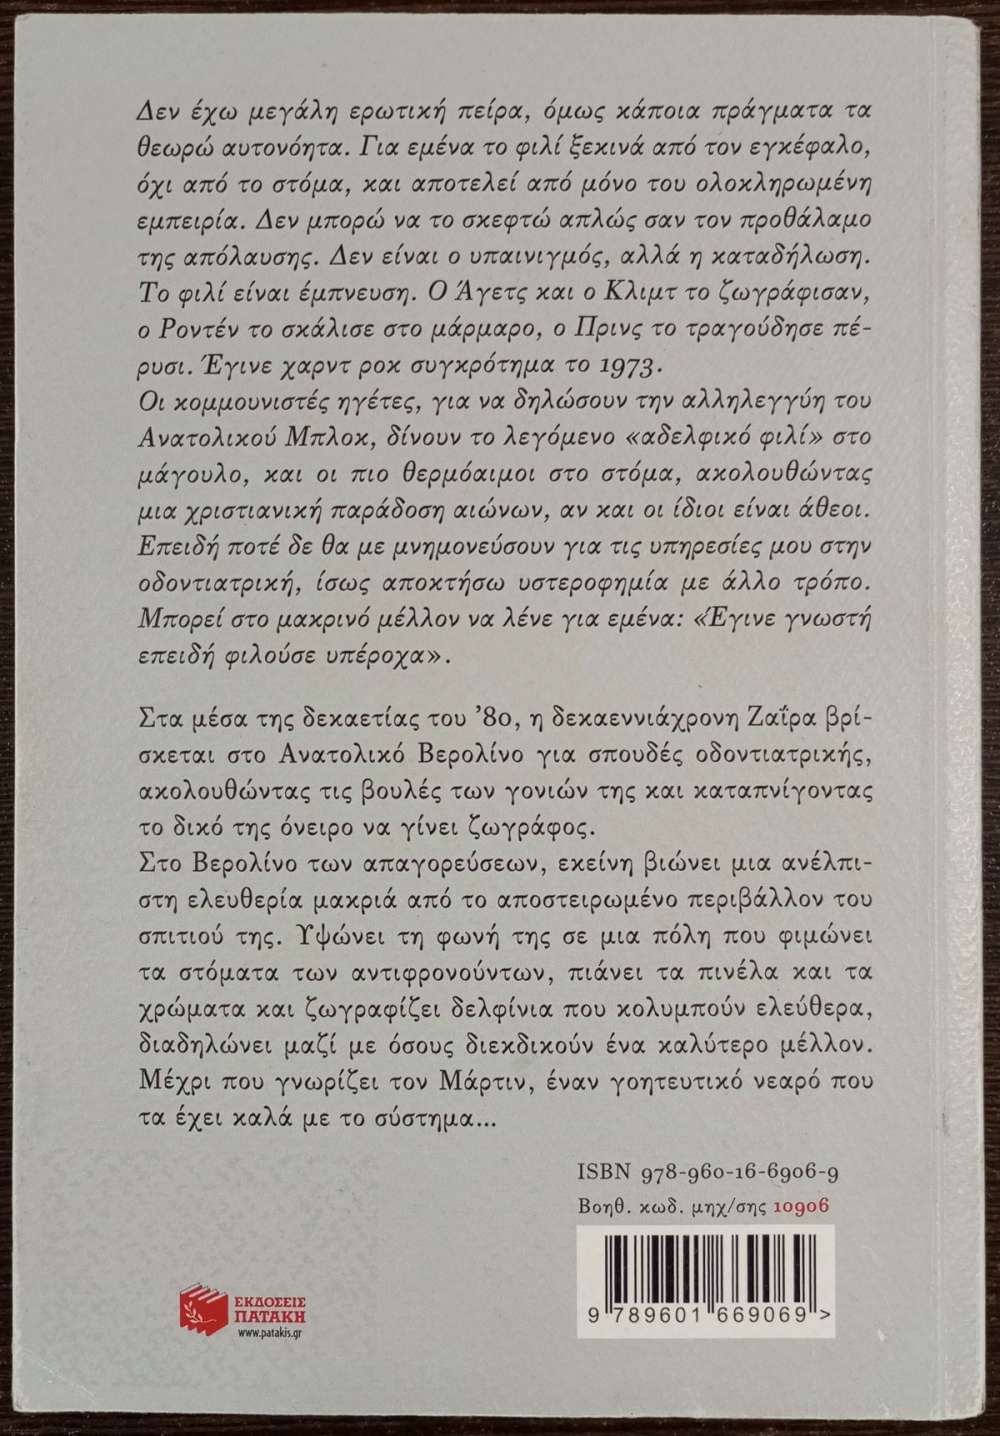 Δεν έχω μεγάλη ερωτική πείρα, όμως κάποια πράγματα τα
θεωρώ αυτονόητα. Για εμένα το φιλί ξεκινά από τον εγκέφαλο,
όχι από το στόμα, και αποτελεί από μόνο του ολοκληρωμένη
εμπειρία. Δεν μπορώ να το σκεφτώ απλώς σαν τον προθάλαμο
της απόλαυσης. Δεν είναι ο υπαινιγμός, αλλά η καταδήλωση.
Το φιλί είναι έμπνευση. Ο Άγετς και ο Κλιμτ το ζωγράφισαν,
ο Ροντέν το σκάλισε στο μάρμαρο, ο Πρινς το τραγούδησε πέ-
ρυσι. Έγινε χαρντ ροκ συγκρότημα το 1973.
Οι κομμουνιστές ηγέτες, για να δηλώσουν την αλληλεγγύη του
Ανατολικού Μπλοκ, δίνουν το λεγόμενο «αδελφικό φιλί» στο
μάγουλο, και οι πιο θερμόαιμοι στο στόμα, ακολουθώντας
μια χριστιανική παράδοση αιώνων, αν και οι ίδιοι είναι άθεοι.
Επειδή ποτέ δε θα με μνημονεύσουν για τις υπηρεσίες μου στην
οδοντιατρική, ίσως αποκτήσω υστεροφημία με άλλο τρόπο.
Μπορεί στο μακρινό μέλλον να λένε για εμένα: «Έγινε γνωστή
επειδή φιλούσε υπέροχα».
Στα μέσα της δεκαετίας του ’80, η δεκαεννιάχρονη Ζαΐρα βρί-
σκεται στο Ανατολικό Βερολίνο για σπουδές οδοντιατρικής,
ακολουθώντας τις βουλές των γονιών της και καταπνίγοντας
το δικό της όνειρο να γίνει ζωγράφος.
Στο Βερολίνο των απαγορεύσεων, εκείνη βιώνει μια ανέλπι-
στη ελευθερία μακριά από το αποστειρωμένο περιβάλλον του
σπιτιού της. Υψώνει τη φωνή της σε μια πόλη που φιμώνει
τα στόματα των αντιφρονούντων, πιάνει τα πινέλα και τα
χρώματα και ζωγραφίζει δελφίνια που κολυμπούν ελεύθερα,
διαδηλώνει μαζί με όσους διεκδικούν ένα καλύτερο μέλλον.
Μέχρι που γνωρίζει τον Μάρτιν, έναν γοητευτικό νεαρό που
τα έχει καλά με το σύστημα...
ISBN 978-960-16-6906-9
Βοηθ. κωδ. μηχ/σης 10906
9 789601 669069 >
ΕΚΔΟΣΕΙΣ
ΠΑΤΑΚΗ
www.patakis.gr